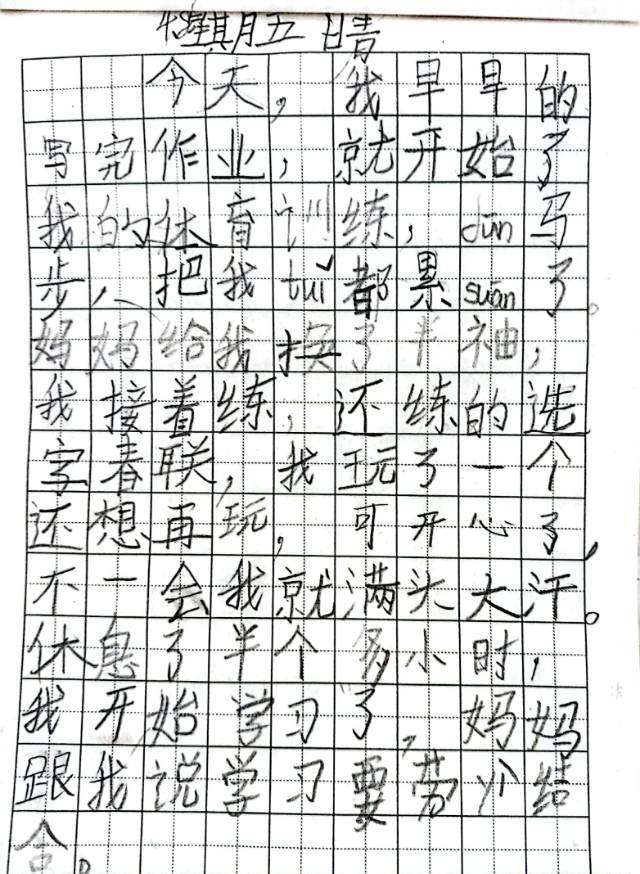 星期五 晴
今天，我早早的
写完作业，就开始了
我的体育训练，dūn马
步，把我tuǐ都累suān了。
妈妈给我换了半袖，
我接着练，还练的选
字春联，我玩了一个
还想再玩，可开心了，
不一会我就满头大汗。
休息了半个多小时，
我开始学习了，妈妈
跟我说学习要劳 结
合。